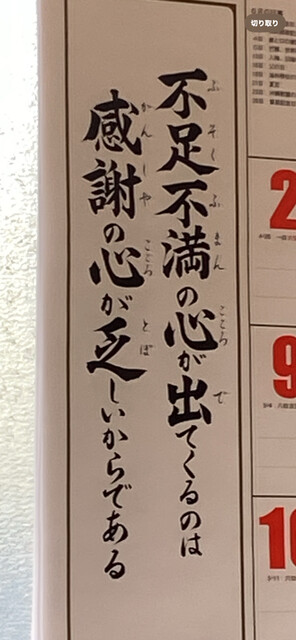 切り取り
不足不満の心が出てくるのは
ふそくふまんこころで
感謝の心が乏しいからである
かんしゃこころとぼ
2
9
10